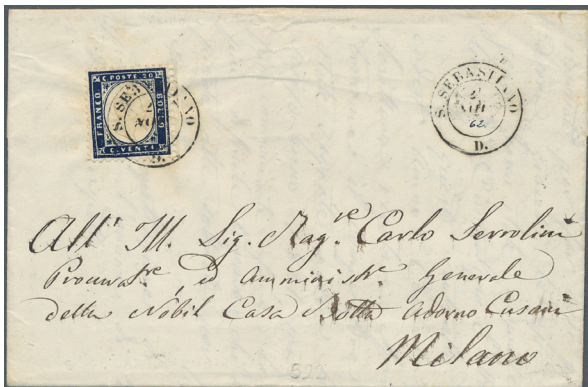 C. POSTE 20
FRANCO
BOLLO
C. VENTI
S. SEBASTIANO
62
D.
All' Ill. Sig. Rag.re Carlo Serrolini
Procuratre ed amministr. Generale
della Nobil Casa Botta Adorno Cusani
Milano
522